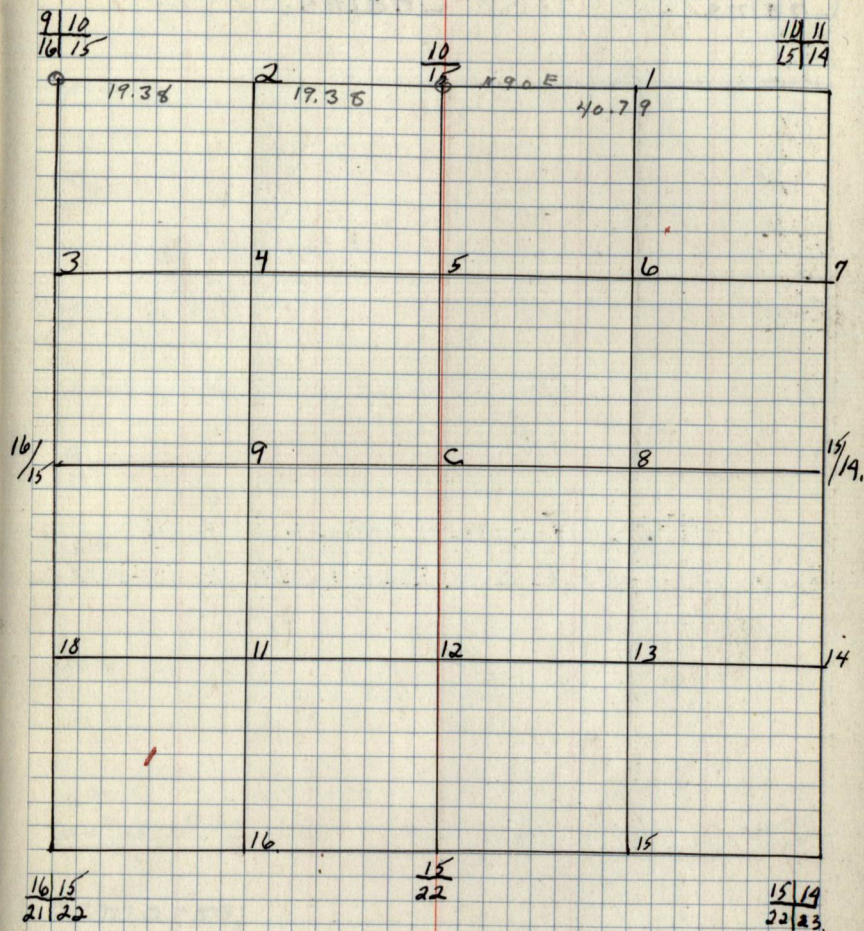 9 | 10
16 | 15
10
15
10 | 11
15 | 14
2
1
19.38
19.38
N 90 E
40.79
3
4
5
6
7
16/15
9
C
8
15/14.
18
11
12
13
14
16
15
16 | 15
21 | 22
15
22
15 | 14
22 | 23.